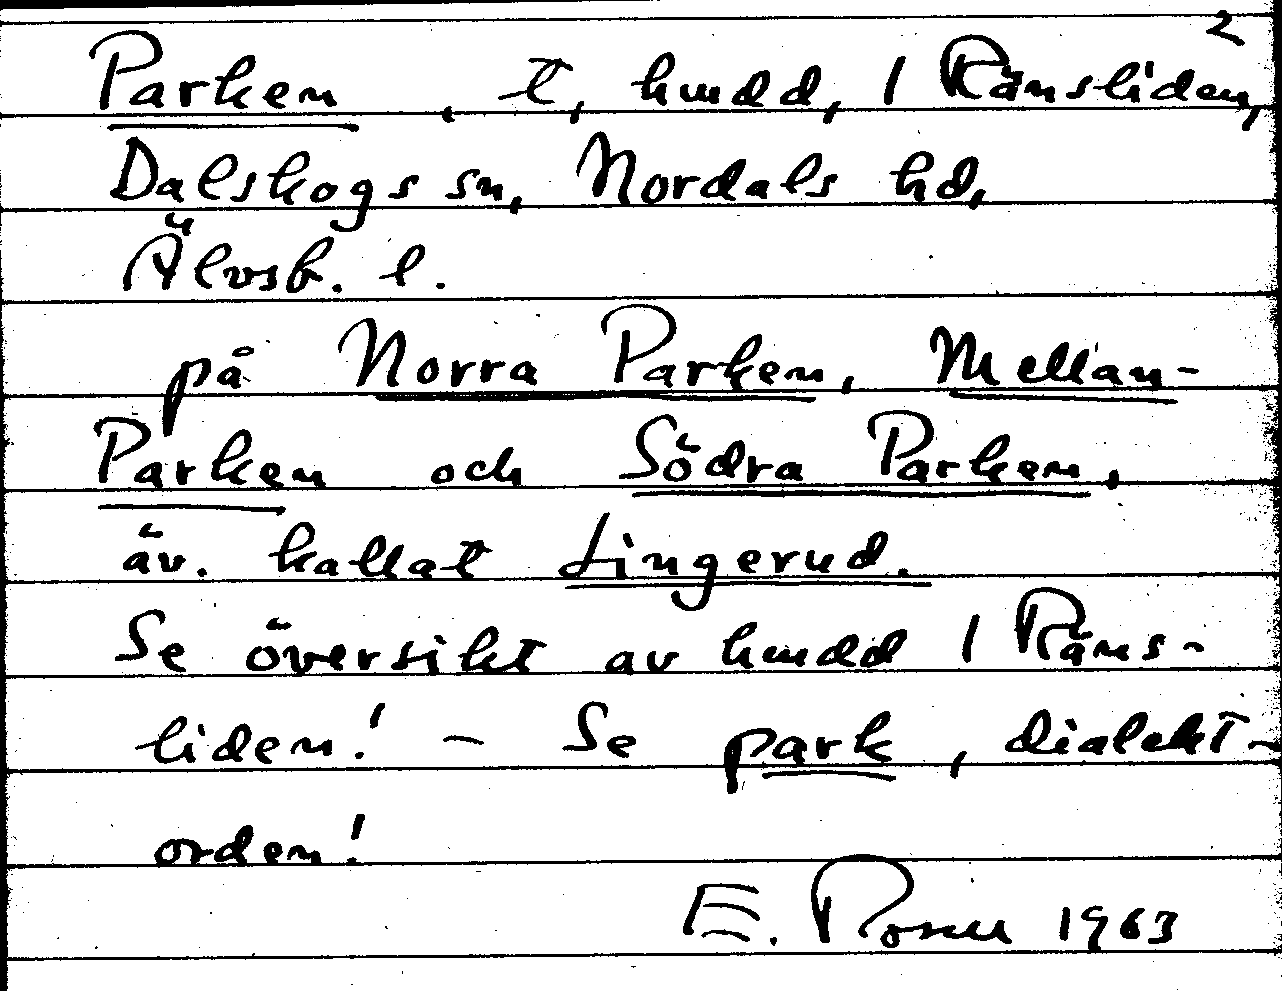 2
Parken, t, hmdd, 1 Ränsliden,
Dalskogs sn, Nordals hd,
Älvsb. l.
på Norra Parken, Mellan-
Parken och Södra Parken,
äv. kallat Lingerud.
Se översikt av hmdd 1 Räns-
liden! - Se park, dialekt-
orden!
E. Rosell 1963